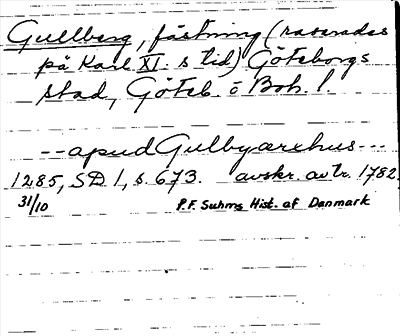 Gullberg, fästning (raserades
på Karl XI:s tid) Göteborgs
stad, Göteb. o Boh. l.
--apud Gulbyærehus---
1285, SD 1, s. 673. avskr. avtr. 1782
31/10 P.F. Suhms Hist. af Danmark